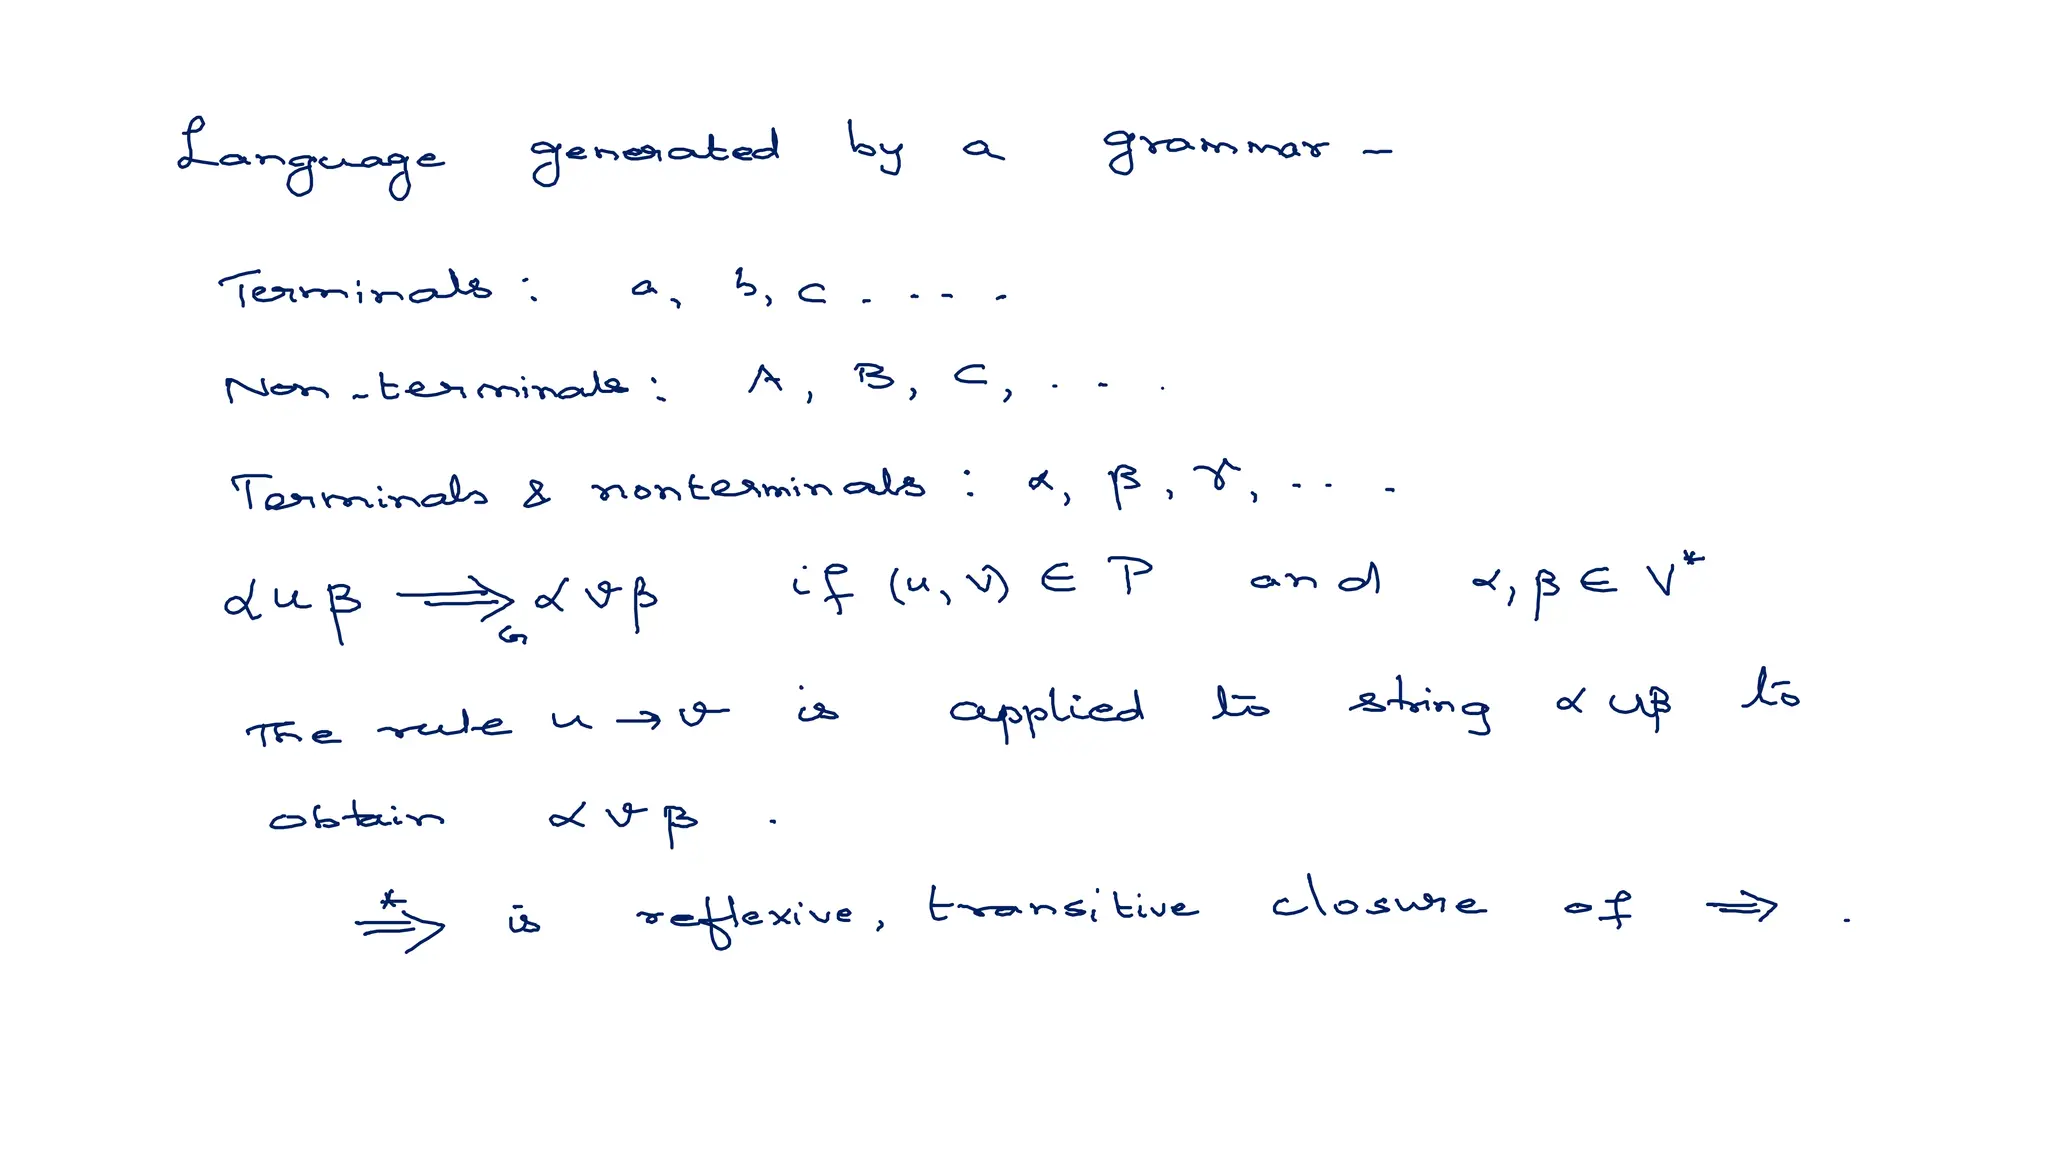 Language generated by a grammar -
Terminals : a, b, c . . . .
Non-terminals : A, B, C, . . .
Terminals & nonterminals : α, β, γ, . . .
α u β ⟹_G α v β if (u, v) ∈ P and α, β ∈ V*
The rule u → v is applied to string α u β to
obtain α v β .
⟹^* is reflexive, transitive closure of ⟹ .